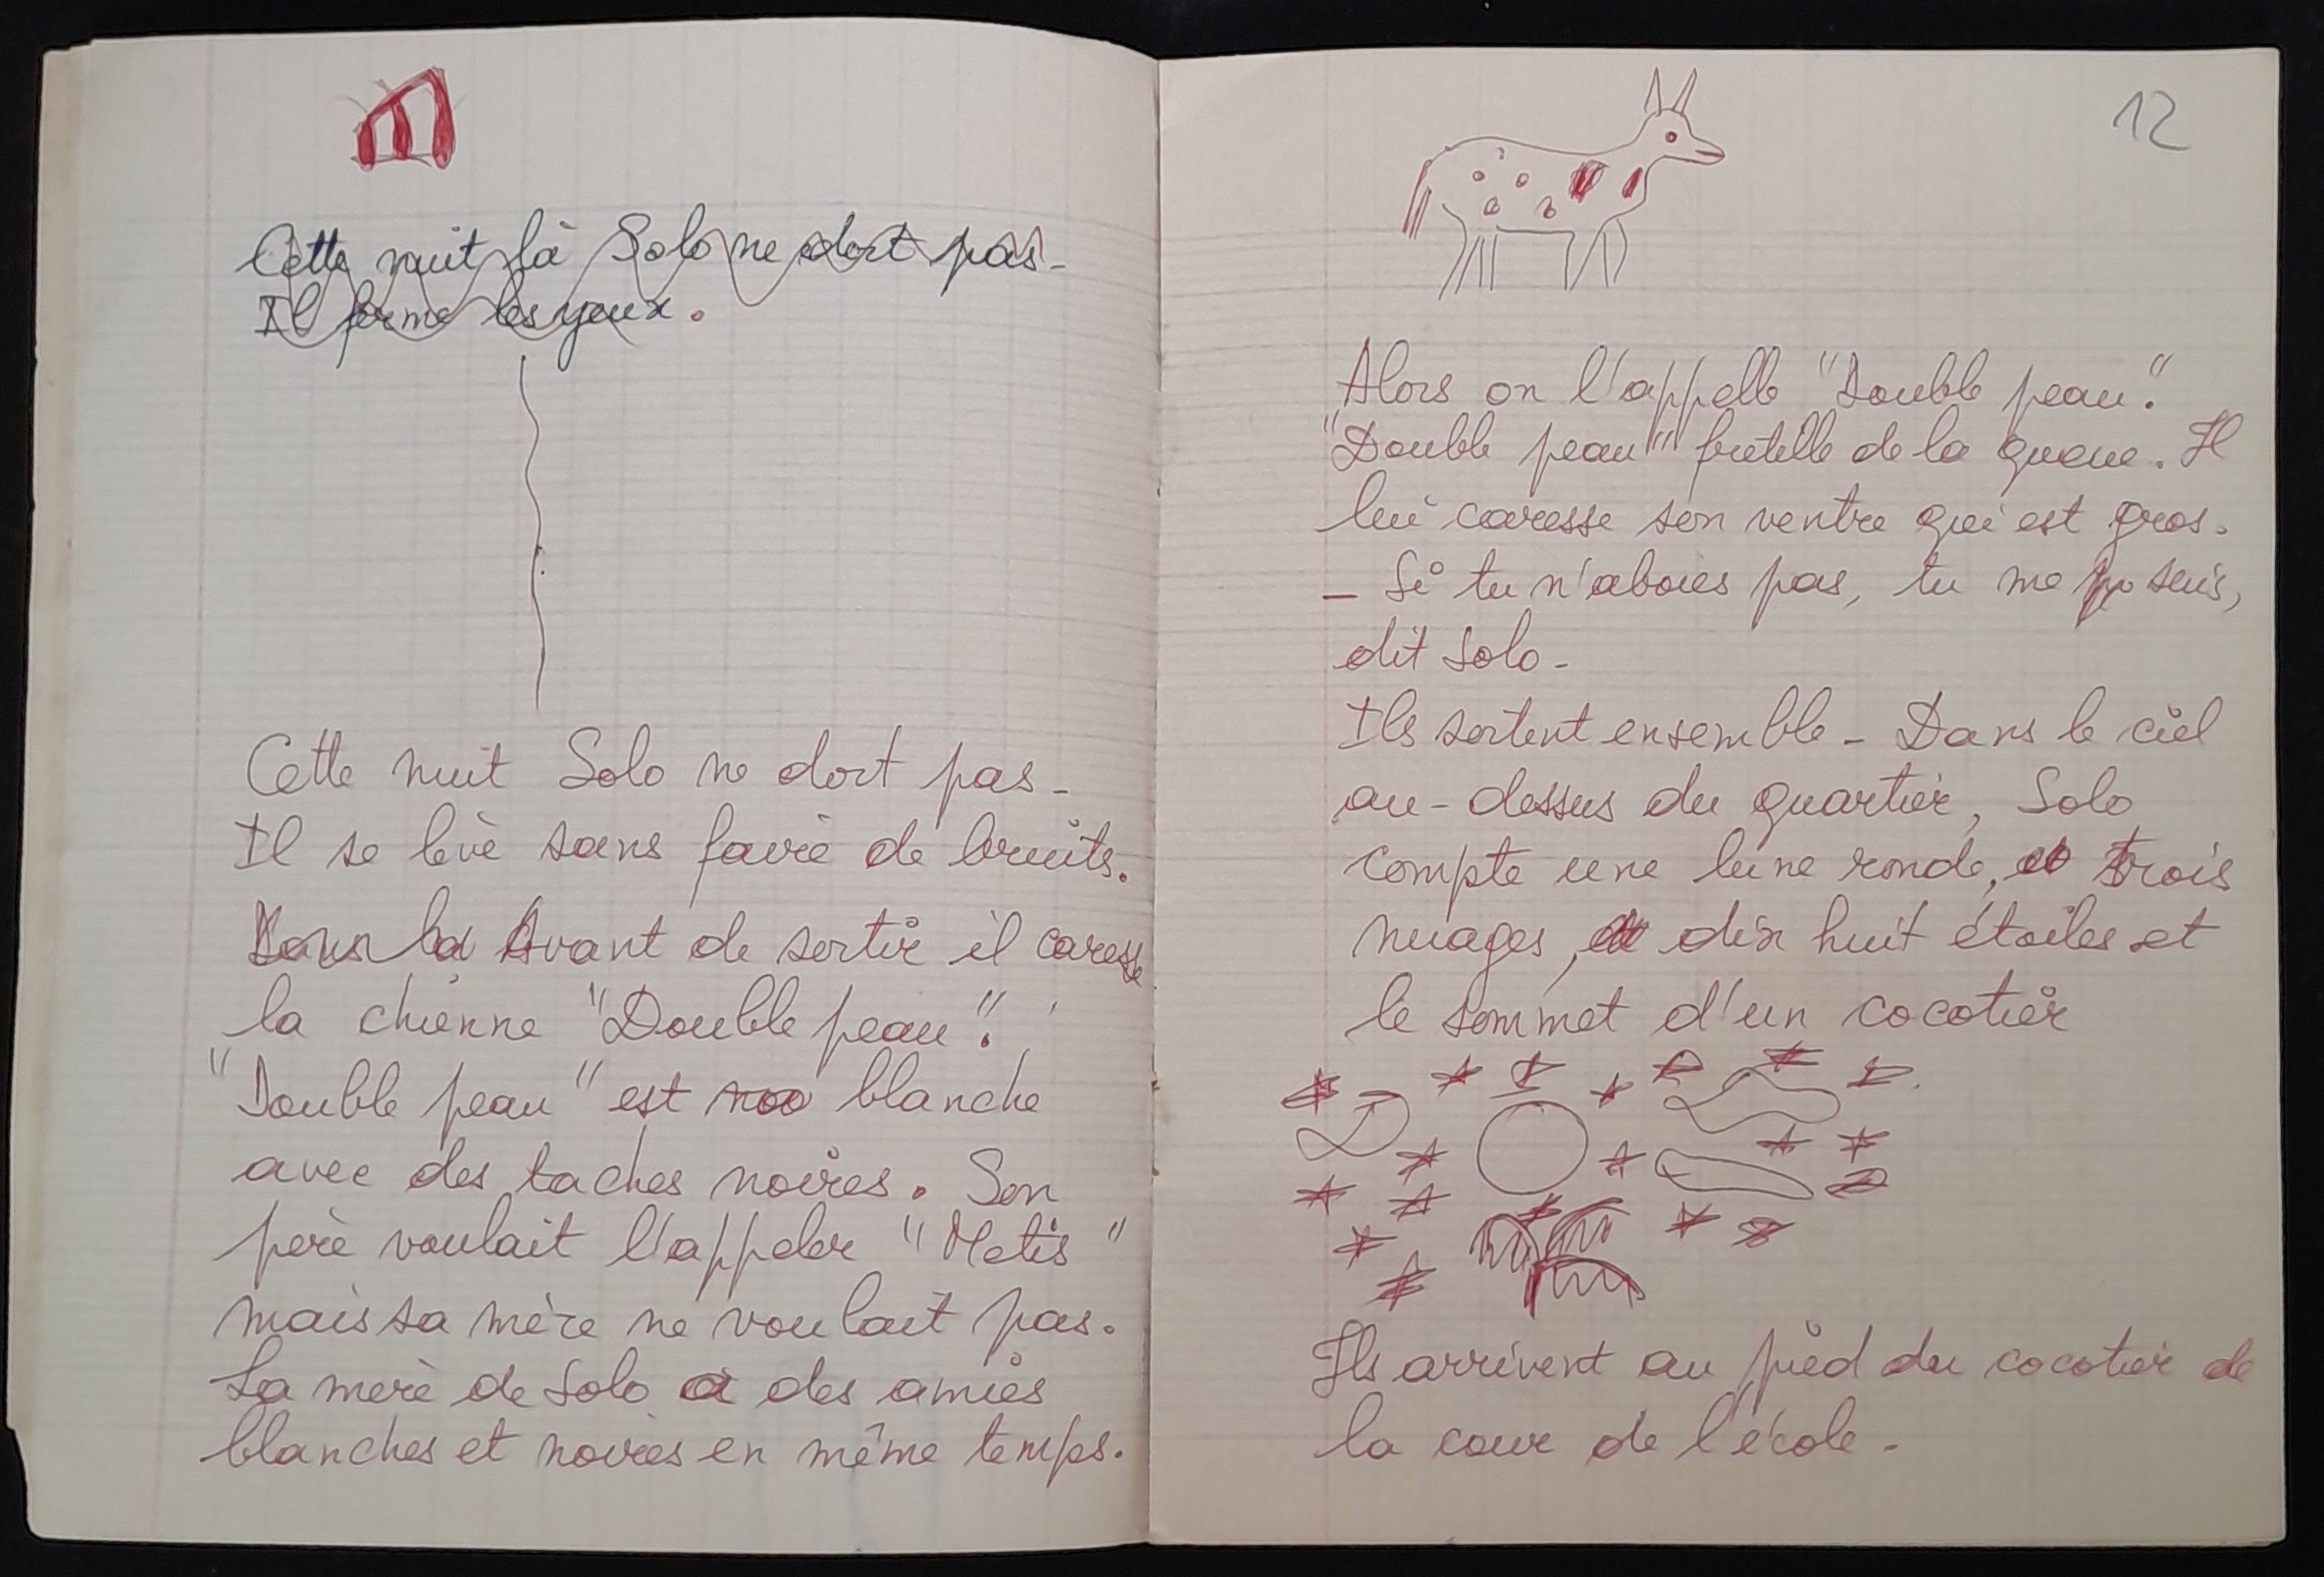 III
Cette nuit là Solo ne dort pas-
Il ferme les yeux.
Cette nuit Solo ne dort pas-
Il se lève sans faire de bruits.
Dans la Avant de sortir il caresse
la chienne "Double peau".
"Double peau" est noo blanche
avec des taches noires. Son
père voulait l'appeler "Metis"
mais sa mère ne voulait pas.
La mère de Solo a des amies
blanches et noires en même temps.
12
Alors on l'appelle "Double peau".
"Double peau" fretille de la queue. Il
lui caresse son ventre qui est gros.
- Si tu n'aboies pas, tu me suis,
dit Solo-
Ils sortent ensemble - Dans le ciel
au-dessus du quartier, Solo
compte une lune ronde, et trois
nuages, et dix huit étoiles et
le sommet d'un cocotier
Ils arrivent au pied du cocotier de
la cour de l'école-